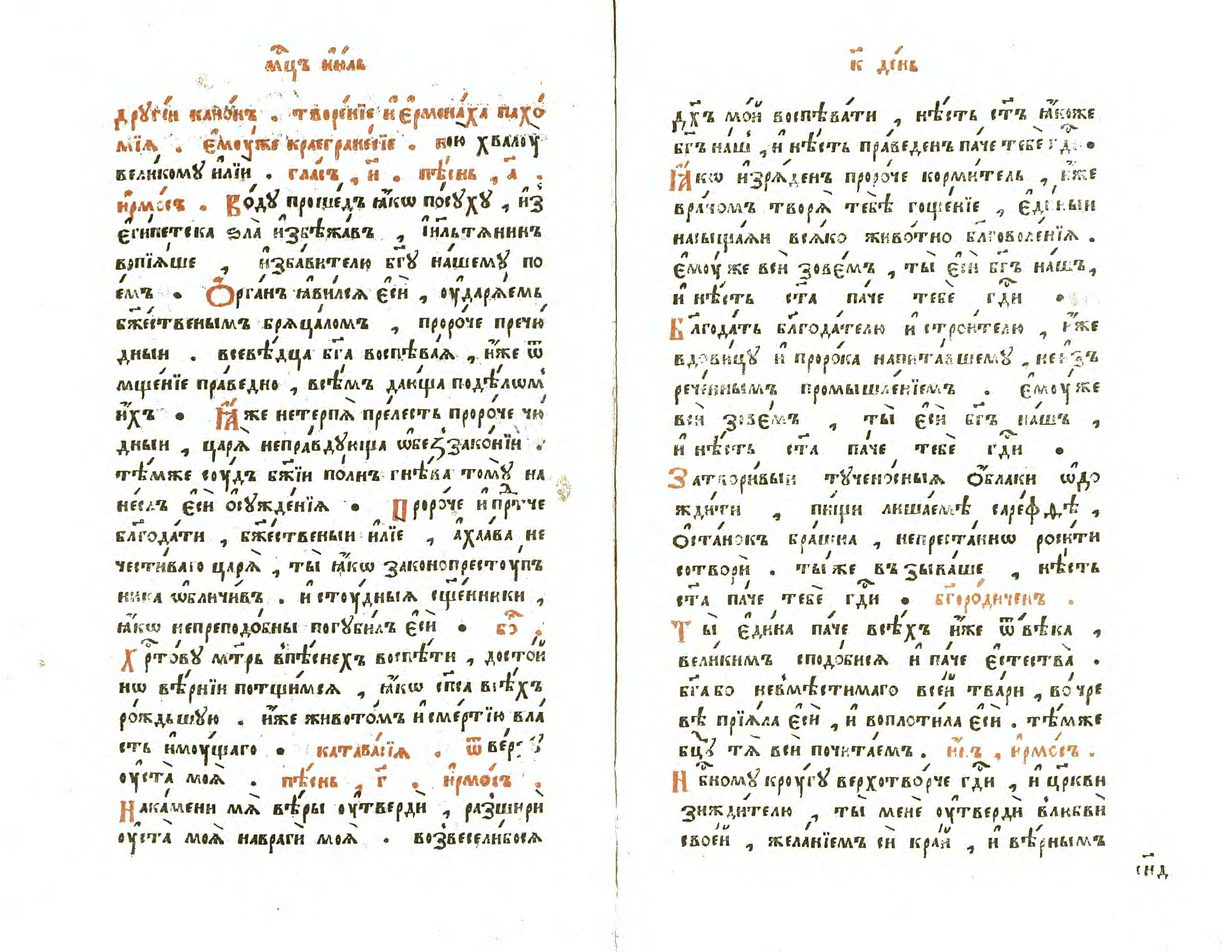 мц҃ъ ию́ль
дрꙋгі́и кано́нъ . творе́нїе и҆ е҆рмона́ха пахо́
мїѧ . е҆моу́же краегране́сїе . пою хвалоу̀
великомꙋ и҆лїи . гла́съ , и҃ . пѣ́снь , а҃ .
и҆рмо́съ . Во́дꙋ проше́дъ ꙗ҆́кѡ по́сꙋхꙋ , и҆з̾
е҆ги́петска ѕла̀ и҆збѣ́жавъ , і҆и҃льтѧнинъ
вопїѧ́ше , и҆зба́вителю бг҃ꙋ на́шемꙋ по
е́мъ . Ѻ҆рга́нъ ꙗ҆ви́лсѧ є҆сѝ , оу҆дарѧ́емь
бж҃е́ственымъ брѧца́ломъ , проро́че пречю́
дныи . всевѣ́дца бг҃а воспѣва́ѧ , и҆́же ѿ
мще́нїе пра́ведно , всѣ́мъ даю́ща подѣ́лѡм̾
и҆́хъ . Ꙗ҆́же нетерпѧ̀ пре́лесть проро́че чю́
дныи , царѧ̀ непра́вдꙋюща ѡ҆беззако́нїи .
тѣ́мже соу́дъ бж҃їи по́лнъ гнѣ́ва томꙋ̀ на
не́слъ є҆сѝ ѻ҆сꙋжде́нїѧ . Проро́че и҆ прⷣте́че
благода́ти , бж҃е́ственыи и҆лїѐ , а҆хаа́ва не
чести́ваго царѧ̀ , ты̀ ꙗ҆́кѡ законопрестоу́пъ
ника ѡ҆бличи́въ . и҆ стоу́дныѧ сщ҃е́нники ,
ꙗ҆́кѡ непреподо́бны погꙋби́лъ є҆сѝ . бо҃ .
Хрⷭ҇то́вꙋ мт҃рь в̾пѣ́снехъ воспѣ́ти , досто́и
нѡ вѣ́рнїи потщи́мсѧ , ꙗ҆́кѡ сп҃са всѣ́хъ
ро́ждьшꙋю . и҆́же живото́мъ и҆ сме́ртїю вла́
сть и҆моу́щаго . катава́сїѧ . ѿве́рзꙋ
оу҆ста̀ моѧ̀ . пѣ́снь , г҃ . и҆рмо́съ .
На ка́мени мѧ̀ вѣ́ры оу҆твердѝ , разширѝ
оу҆ста̀ моѧ̀ на врагѝ моѧ̀ . возвесели́босѧ
к҃ де́нь
дх҃ъ мо́й воспѣва́ти , нѣ́сть ст҃ъ ꙗ҆́коже
бг҃ъ на́ш̾ , и҆ нѣ́сть пра́веденъ па́че тебѐ гд҇и .
Ꙗ҆́кѡ и҆зрѧ́денъ проро́че корми́тель , и҆́же
вра́номъ творѧ̀ тебѣ̀ гоще́нїе , є҆ди́ныи
насыща́ѧи всѧ́ко живо́тно бл҃говоле́нїѧ .
є҆моу́же всѝ зове́мъ , ты̀ є҆сѝ бг҃ъ на́шъ ,
и҆ нѣ́сть ст҃а па́че тебѐ гд҇и .
Благода́ть бл҃года́телю и҆ строи́телю , и҆́же
вдови́цꙋ и҆ проро́ка напита́вшемꙋ , неи҆з̾
рече́ннымъ промышле́нїемъ . є҆моу́же
всѝ зове́мъ , ты̀ є҆сѝ бг҃ъ на́шъ ,
и҆ нѣ́сть ст҃а па́че тебѐ гд҇и .
Затвори́выи тꙋчено́сныѧ ѻ҆́блаки ѡ҆до
жди́ти , пи́щи лиша́емѣ саре́фдѣ ,
ѻ҆ста́нокъ бра́шна , непреста́ннѡ роси́ти
сотворѝ . ты́же взыва́ше , нѣ́сть
ст҃а па́че тебѐ гд҇и . бг҃оро́диченъ .
Ты̀ є҆ди́на па́че всѣ́хъ и҆́же ѿ вѣ́ка ,
вели́кимъ сподо́бисѧ и҆ па́че є҆стества̀ .
бг҃а бо невмѣсти́маго все́й тва́ри , во чре́
вѣ прїѧ́ла є҆сѝ , и҆ воплоти́ла є҆сѝ . тѣ́мже
бц҃ꙋ тѧ̀ всѝ почита́емъ . и҆́нъ , и҆рмо́съ .
Нб҃номꙋ крꙋ́гꙋ верхотво́рче гд҇и , и҆ цр҃кви
зижди́телю , ты̀ менѐ оу҆твердѝ в̾любвѝ
свое́й , жела́нїемъ си̑ кра́й , и҆ вѣ́рнымъ
сн҃д